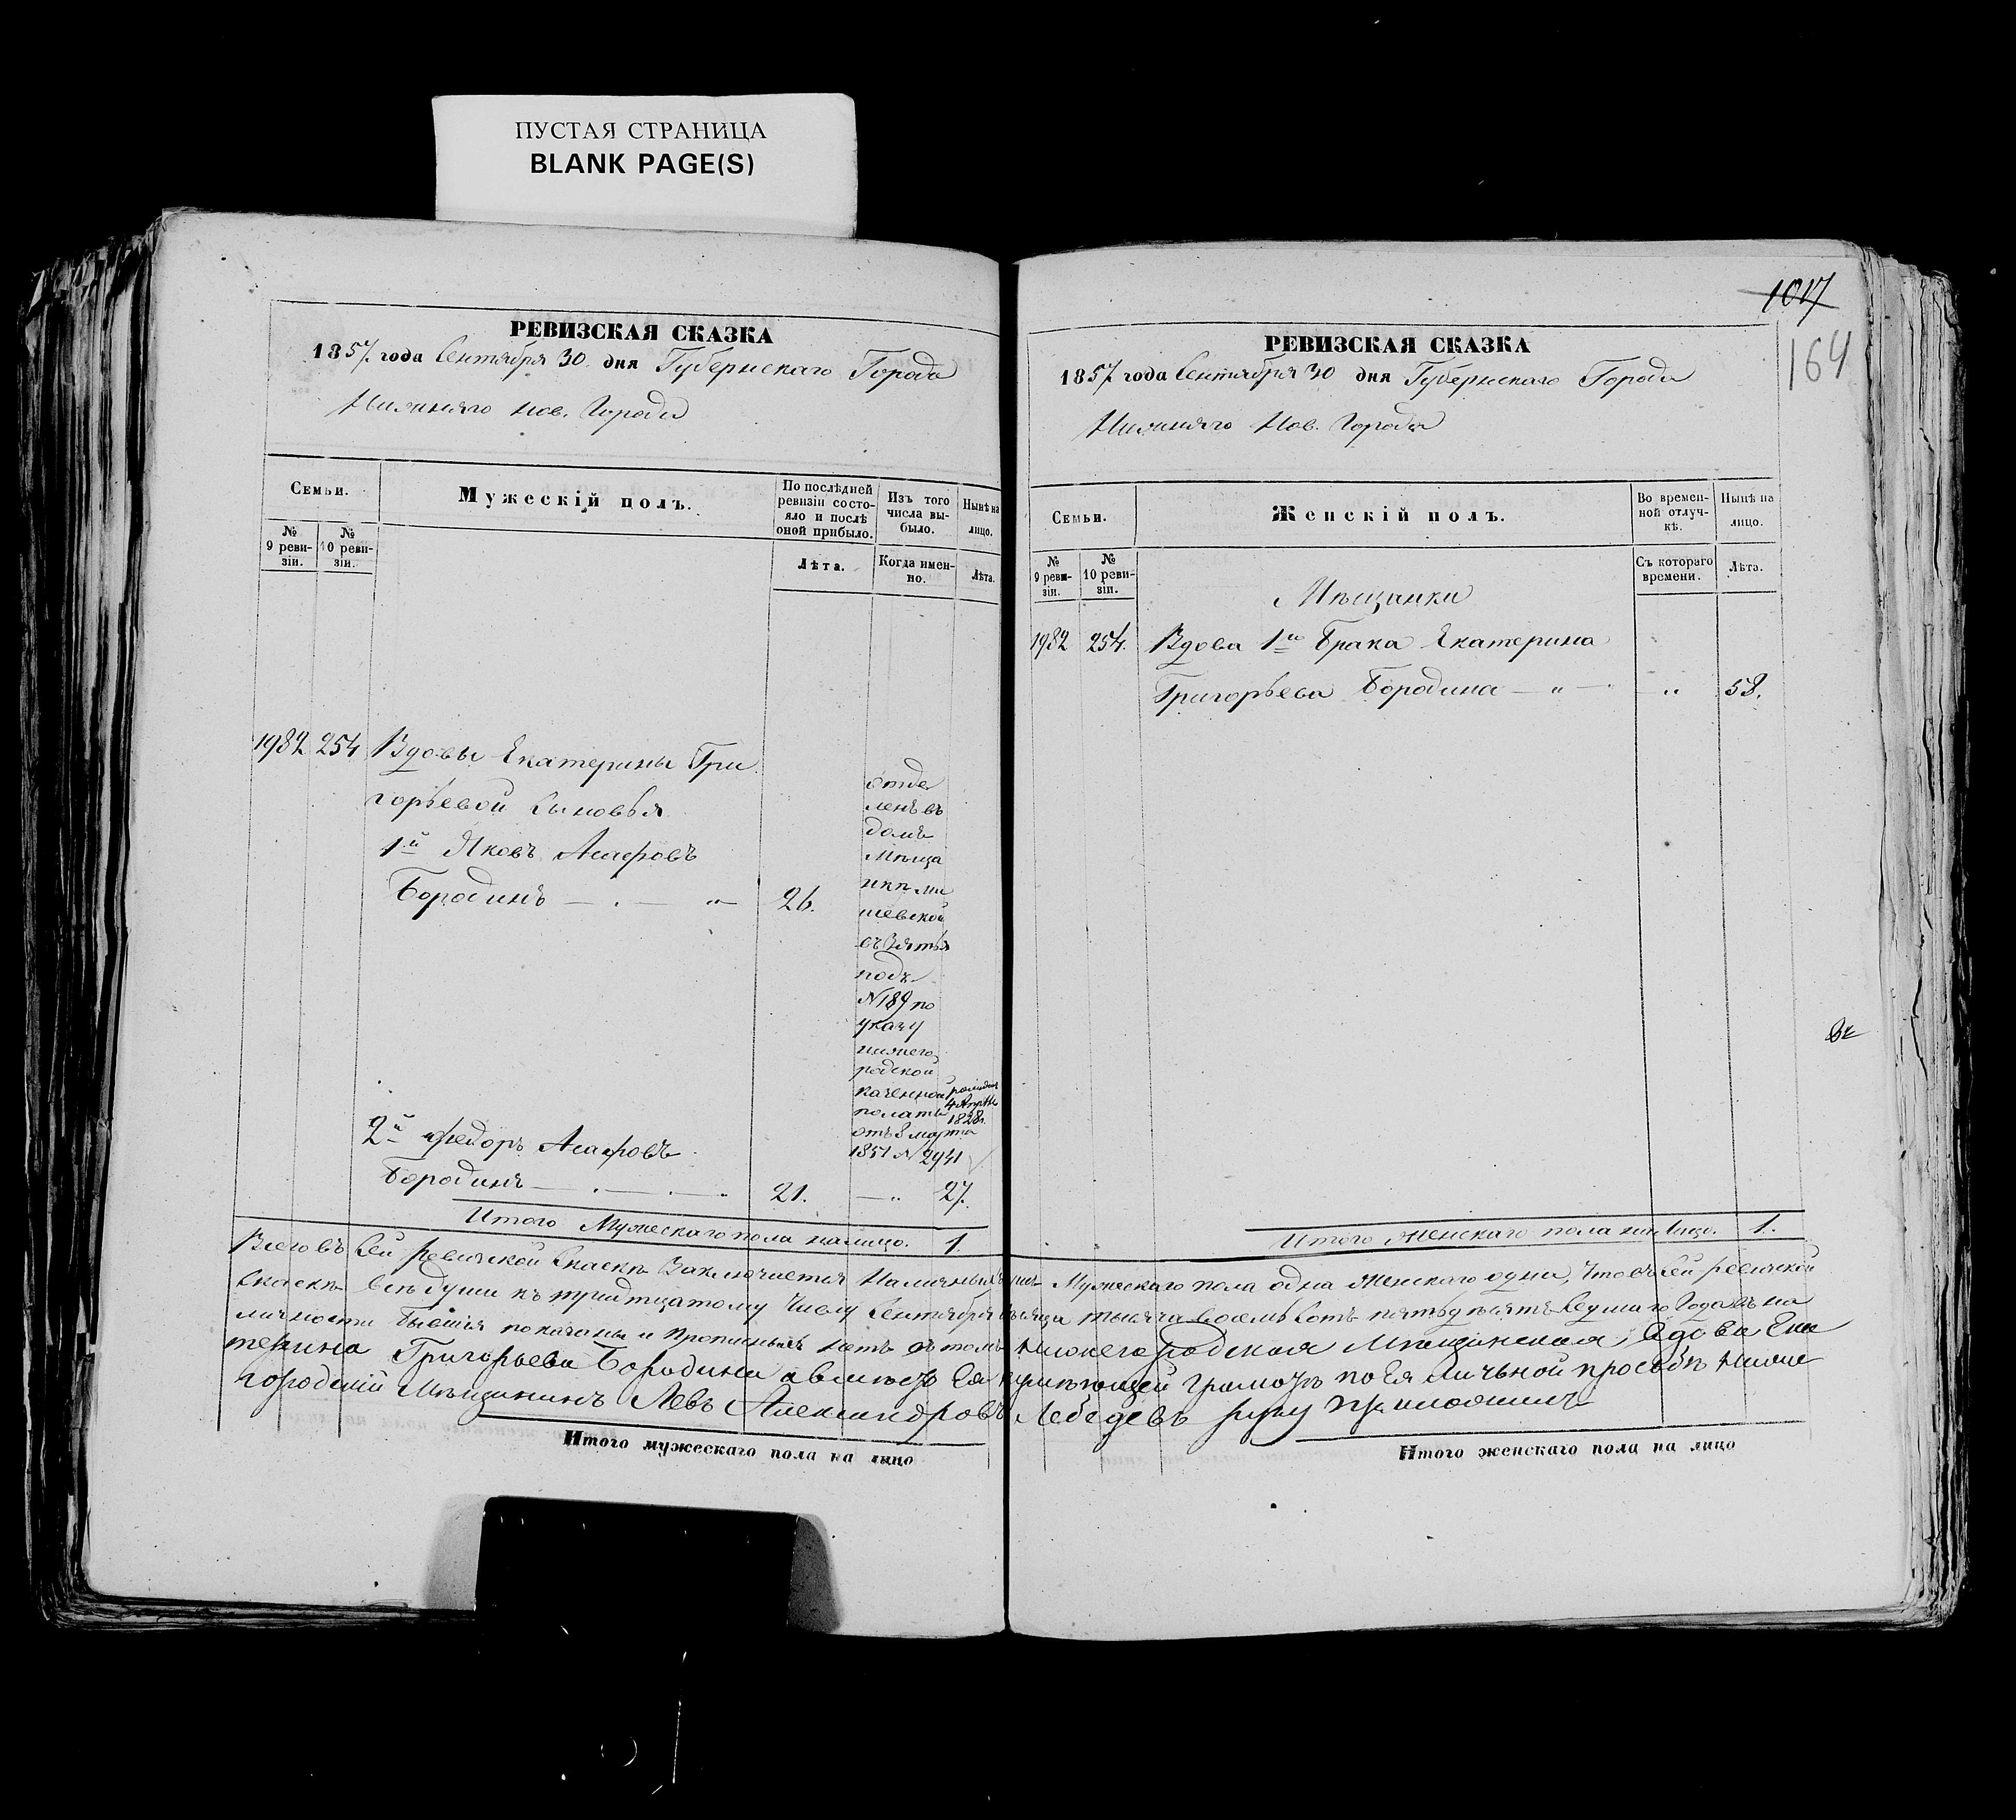 ПУСТАЯ СТРАНИЦА
BLANK PAGE(S)
РЕВИЗСКАЯ СКАЗКА
1857. года Сентября 30. дня Губернскаго Города
Нижняго Нов. Города
Семьи.
Мужескій полъ.
По послѣдней
ревизіи состо-
яло и послѣ
оной прибыло.
Изъ того
числа вы-
было.
Нынѣ на
лицо.
№
9 реви-
зіи.
№
10 реви-
зіи.
Лѣта.
Когда имен-
но.
Лѣта.
1982 254 Вдовы Екатерины Гри
горьевой Сыновья
1й Яковъ Асафовъ
Бородинъ — . — „ 26.
отде
ленъ въ
домъ
Мѣща
нкѣ
подъ
№189 по
указу
нижего
родской
казенной
палаты
отъ 8 марта
1851 № 2941
4 Апрѣ
1828.
2й Федоръ Асафовъ
Бородинъ — . — . — „ 21. — „ 27.
Итого Мужескаго пола налицо. 1.
1017
164
РЕВИЗСКАЯ СКАЗКА
1857. года Сентября 30 дня Губернскаго Города
Нижняго Нов. Города
Семьи.
Женскій полъ.
Во времен-
ной отлуч-
кѣ.
Нынѣ на
лицо.
№
9 реви-
зіи.
№
10 реви-
зіи.
Съ котораго
времени.
Лѣта.
Мѣщанки
1982 254. Вдова 1го Брака Екатерина
Григорьева Бородина — „ — „ 58.
Итого Женскаго пола на Лицо. 1.
Всего въ Сей Ревизской Сказкѣ Заключается Наличныхъ Мужескаго пола одна Женскаго одна, что въ сей ревизской
Сказкѣ всѣ души къ тридцатому Числу Сентября тысяча восемь Сотъ пятьдесятъ Седьмаго Года въ на
личности бывшія показаны и прописныхъ нетъ въ томъ Нижегородская Мѣщанская Вдова Ека
терина Григорьева Бородина а вместо Ея неумѣющей Грамотѣ по Ея Личьной прозьбѣ Ниже
городскій Мѣщанинъ Левъ Александровъ Лебедевъ руку приложилъ
Итого мужескаго пола на лицо
Итого женскаго пола на лицо